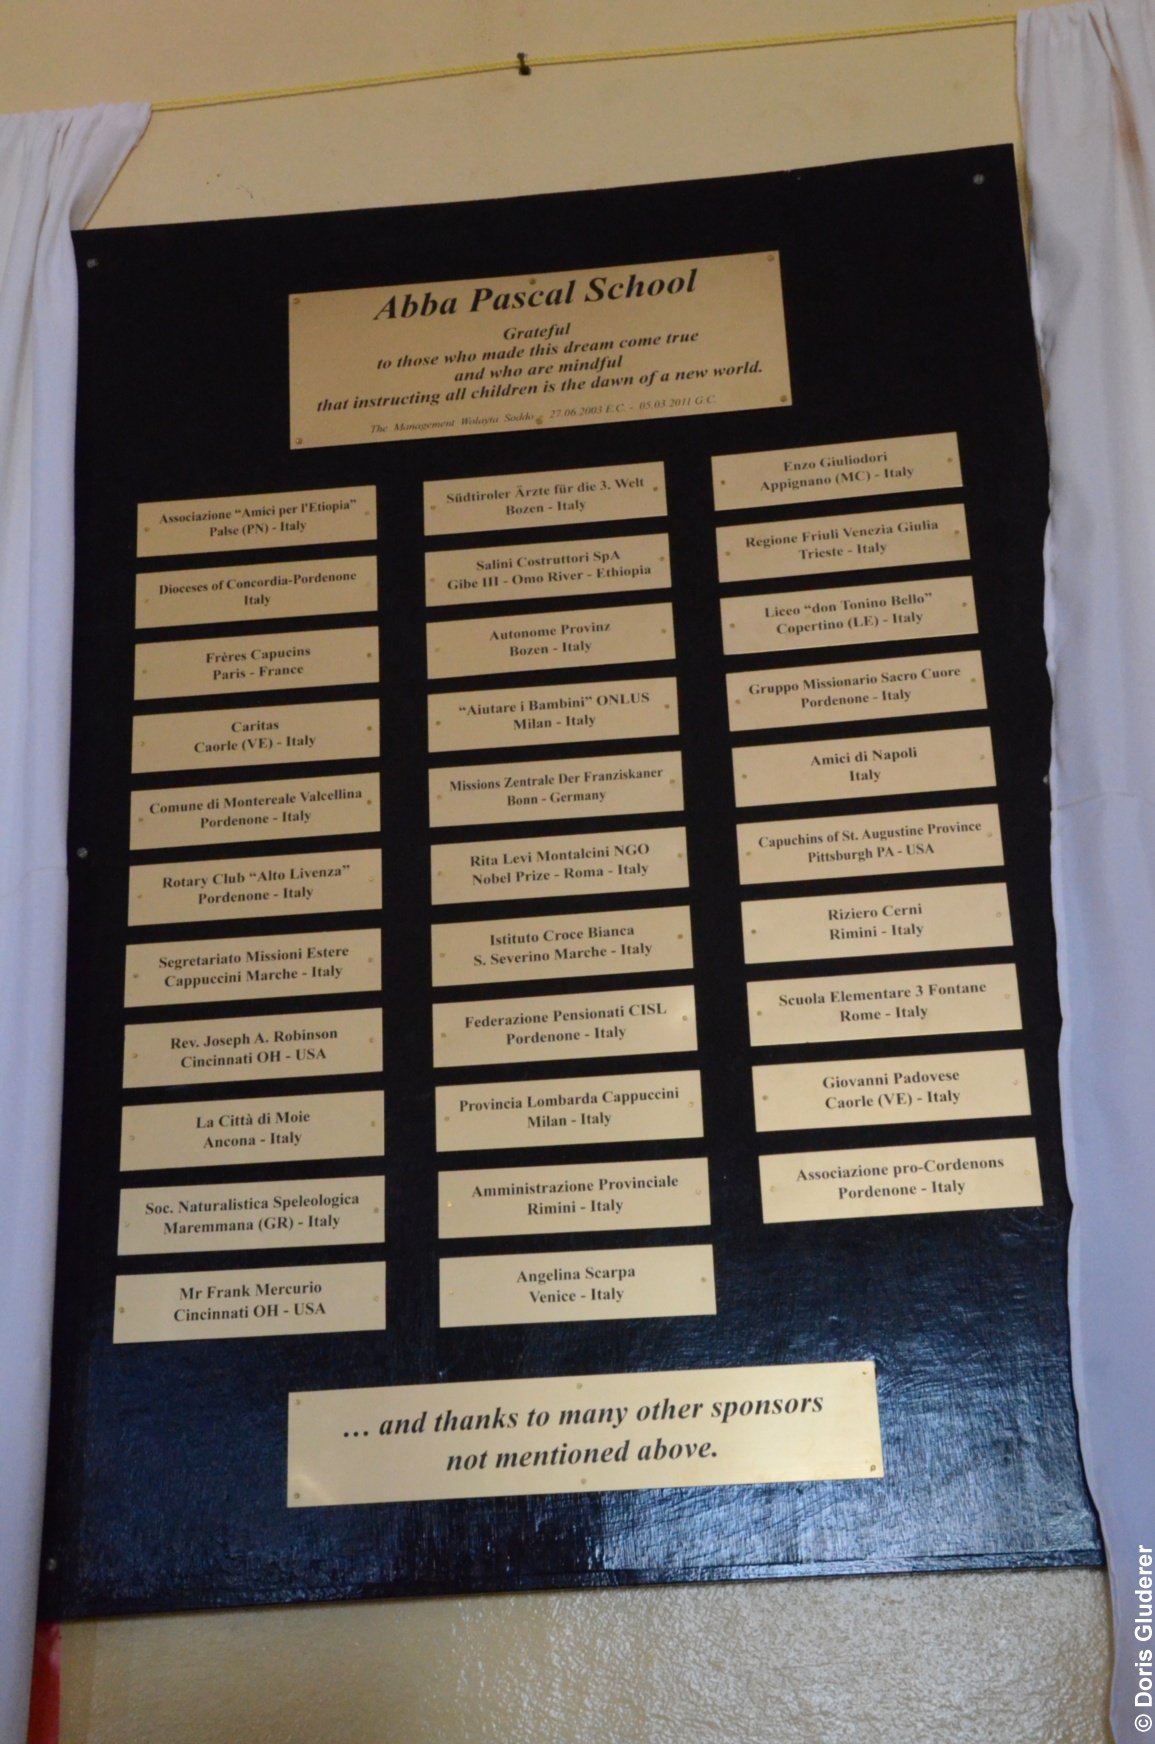 Abba Pascal School
Grateful
to those who made this dream come true
and who are mindful
that instructing all children is the dawn of a new world.
The Management Wolayta Soddo - 27.06.2003 E.C. - 05.03.2011 G.C.
Associazione "Amici per l'Etiopia"
Palse (PN) - Italy
Dioceses of Concordia-Pordenone
Italy
Frères Capucins
Paris - France
Caritas
Caorle (VE) - Italy
Comune di Montereale Valcellina
Pordenone - Italy
Rotary Club "Alto Livenza"
Pordenone - Italy
Segretariato Missioni Estere
Cappuccini Marche - Italy
Rev. Joseph A. Robinson
Cincinnati OH - USA
La Città di Moie
Ancona - Italy
Soc. Naturalistica Speleologica
Maremmana (GR) - Italy
Mr Frank Mercurio
Cincinnati OH - USA
Südtiroler Ärzte für die 3. Welt
Bozen - Italy
Salini Costruttori SpA
Gibe III - Omo River - Ethiopia
Autonome Provinz
Bozen - Italy
"Aiutare i Bambini" ONLUS
Milan - Italy
Missions Zentrale Der Franziskaner
Bonn - Germany
Rita Levi Montalcini NGO
Nobel Prize - Roma - Italy
Istituto Croce Bianca
S. Severino Marche - Italy
Federazione Pensionati CISL
Pordenone - Italy
Provincia Lombarda Cappuccini
Milan - Italy
Amministrazione Provinciale
Rimini - Italy
Angelina Scarpa
Venice - Italy
Enzo Giuliodori
Appignano (MC) - Italy
Regione Friuli Venezia Giulia
Trieste - Italy
Liceo "don Tonino Bello"
Copertino (LE) - Italy
Gruppo Missionario Sacro Cuore
Pordenone - Italy
Amici di Napoli
Italy
Capuchins of St. Augustine Province
Pittsburgh PA - USA
Riziero Cerni
Rimini - Italy
Scuola Elementare 3 Fontane
Rome - Italy
Giovanni Padovese
Caorle (VE) - Italy
Associazione pro-Cordenons
Pordenone - Italy
... and thanks to many other sponsors
not mentioned above.
© Doris Gluderer